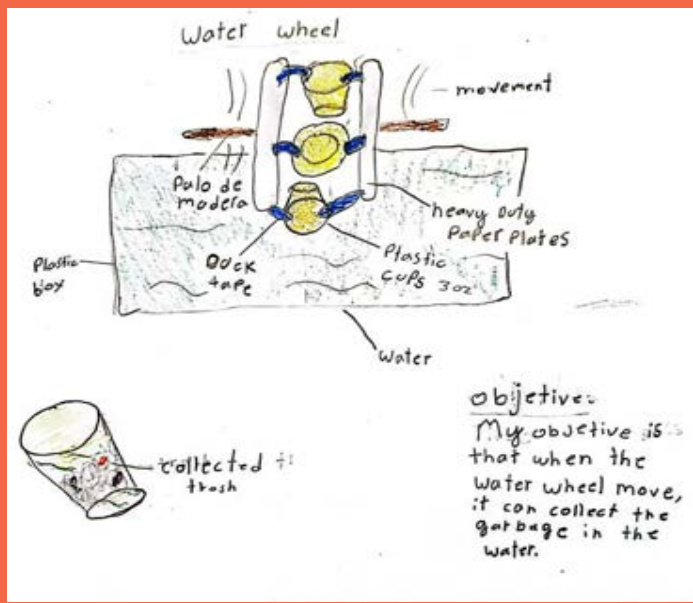 Water wheel
movement
Palo de
madera
heavy Duty
Paper Plates
Plastic
box
Duck
tape
Plastic
cups 3 oz
water
collected
trash
objetive:
My objetive is
that when the
water wheel move,
it can collect the
garbage in the
water.